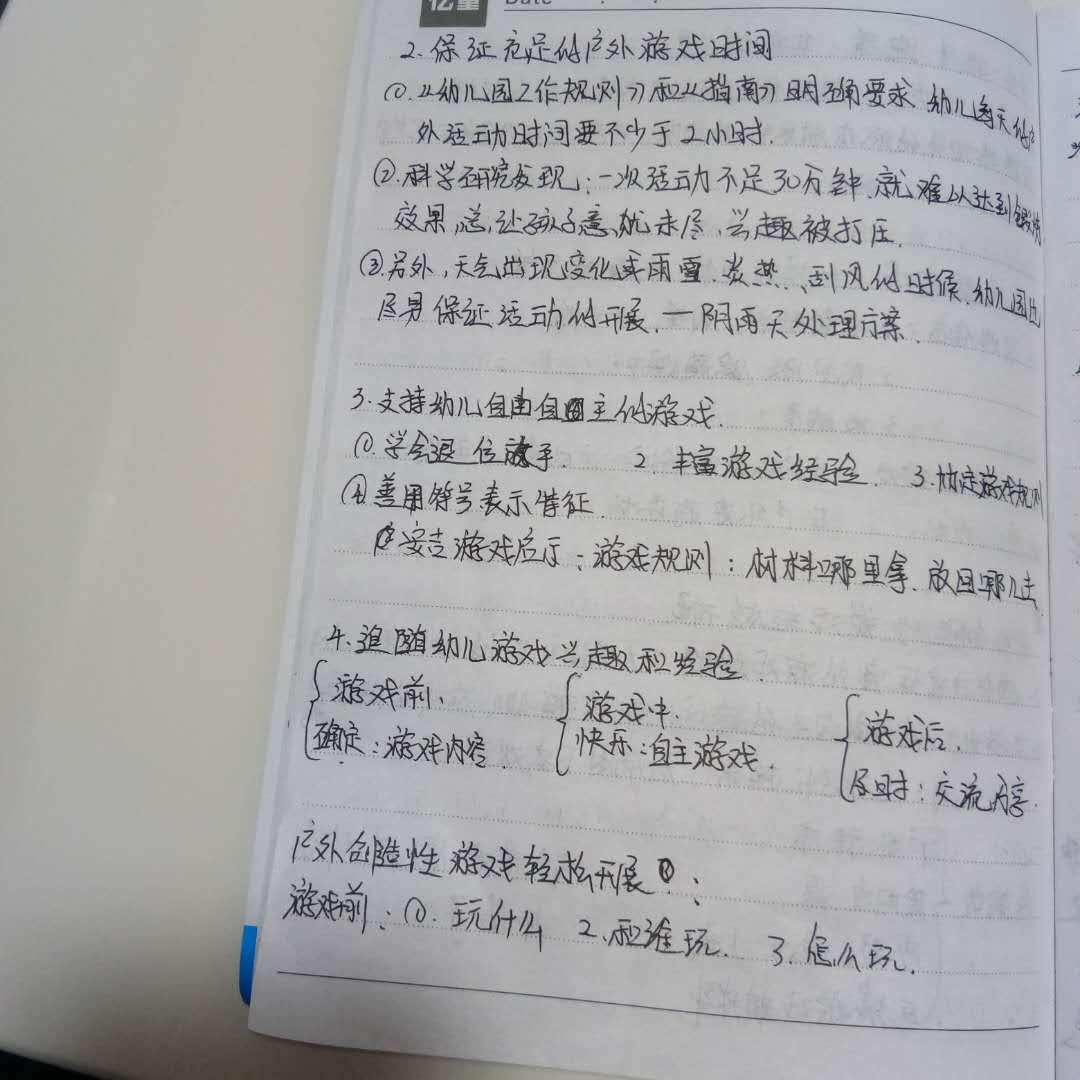 亿童 Date
2.保证充足的户外游戏时间
①.《幼儿园工作规则》和《指南》明确要求,幼儿每天的户
外活动时间要不少于2小时.
②.科学研究发现:一次活动不足30分钟,就难以达到锻炼
效果,总让孩子意犹未尽,兴趣被打压.
③.另外,天气出现变化或雨雪、炎热、刮风的时候,幼儿园也
尽量保证活动的开展.一阴雨天处理方案.
3.支持幼儿自由自主的游戏.
①.学会退位放手. 2 丰富游戏经验. 3.制定游戏规则
④善用符号表示特征
安吉游戏启示:游戏规则:材料哪里拿.放回哪儿去
4.追随幼儿游戏兴趣和经验.
游戏前. 游戏中. 游戏后.
确定:游戏内容. 快乐:自主游戏. 及时:交流分享.
户外创造性游戏轻松开展:
游戏前:①.玩什么 2.和谁玩. 3.怎么玩.